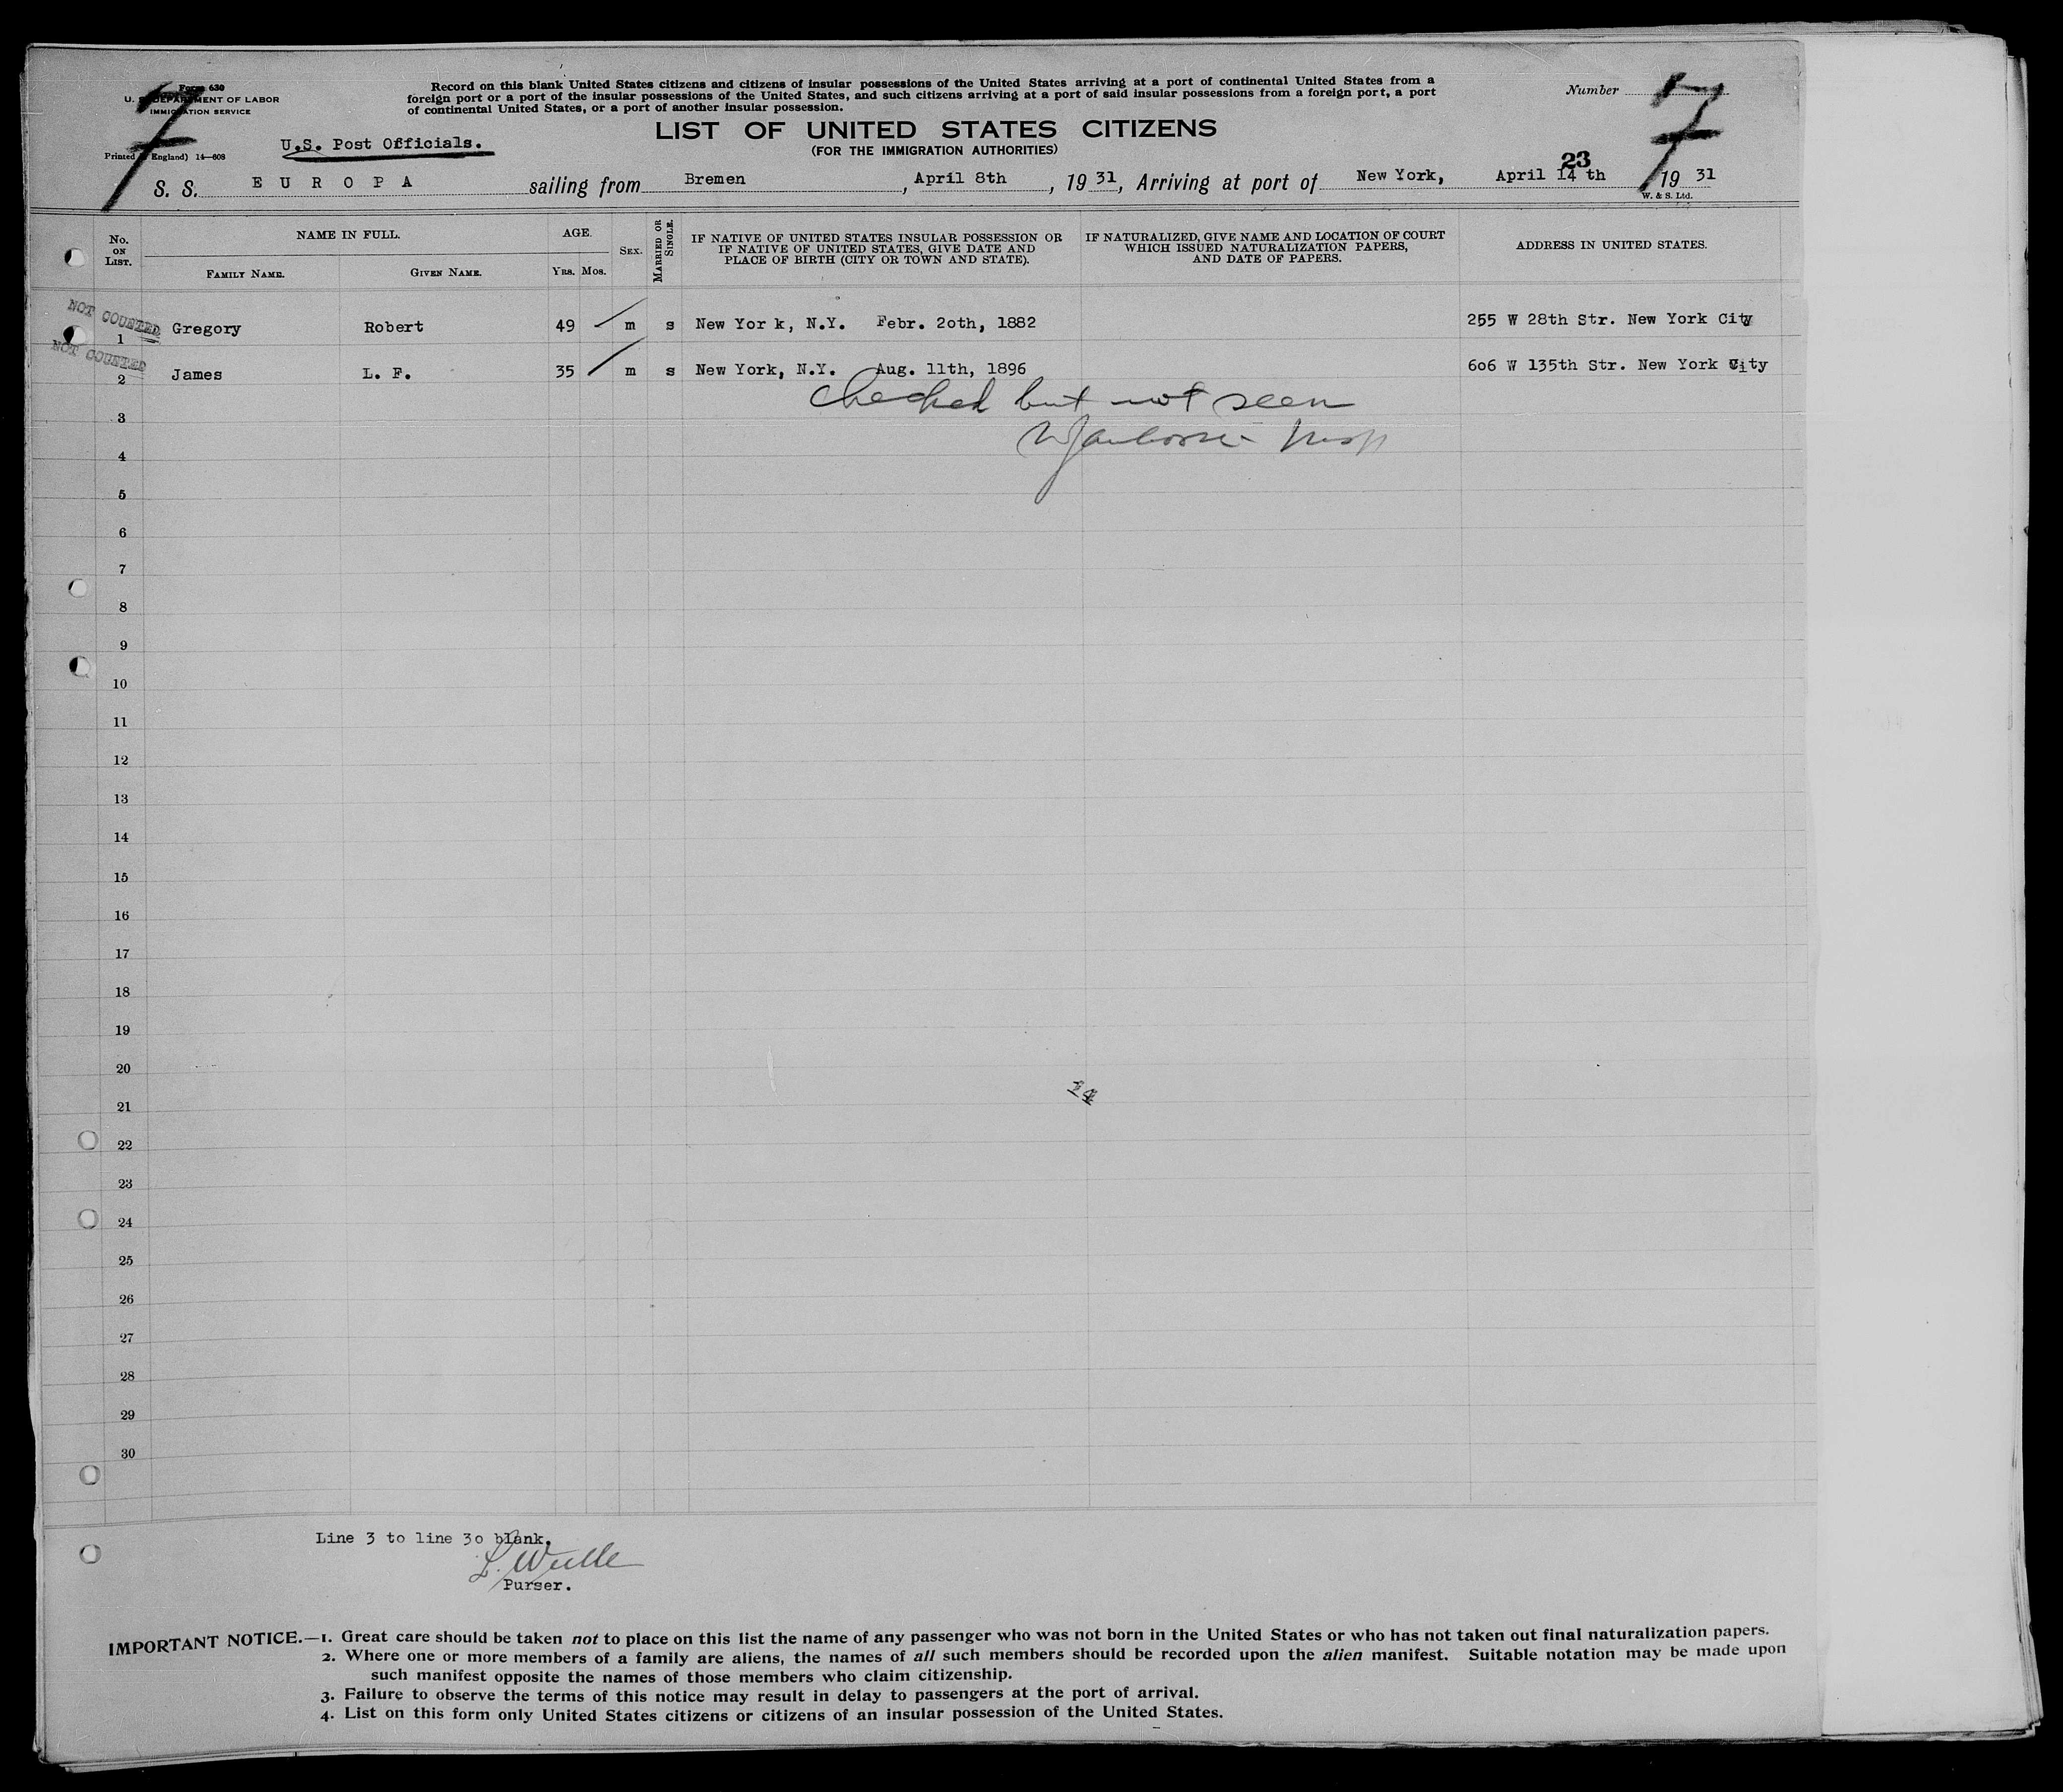 Form 630
U. S. DEPARTMENT OF LABOR
IMMIGRATION SERVICE
Printed in England) 14—608
Record on this blank United States citizens and citizens of insular possessions of the United States arriving at a port of continental United States from a
foreign port or a port of the insular possessions of the United States, and such citizens arriving at a port of said insular possessions from a foreign port, a port
of continental United States, or a port of another insular possession.
Number
LIST OF UNITED STATES CITIZENS
(FOR THE IMMIGRATION AUTHORITIES)
U.S. Post Officials.
S. S. EUROPA sailing from Bremen, April 8th, 19 31, Arriving at port of New York, April 14 th 19 31
23
W. & S. Ltd.
No. ON LIST. NAME IN FULL. FAMILY NAME. GIVEN NAME. AGE. YRS. MOS. SEX. MARRIED OR SINGLE.
IF NATIVE OF UNITED STATES INSULAR POSSESSION OR IF NATIVE OF UNITED STATES, GIVE DATE AND PLACE OF BIRTH (CITY OR TOWN AND STATE).
IF NATURALIZED, GIVE NAME AND LOCATION OF COURT WHICH ISSUED NATURALIZATION PAPERS, AND DATE OF PAPERS.
ADDRESS IN UNITED STATES.
NOT COUNTED
1 Gregory Robert 49 m s New Yor k, N.Y. Febr. 2oth, 1882 255 W 28th Str. New York City
NOT COUNTED
2 James L. F. 35 m s New York, N.Y. Aug. 11th, 1896 6o6 W 135th Str. New York City
checked but not seen
3
4
5
6
7
8
9
10
11
12
13
14
15
16
17
18
19
20
21
22
23
24
25
26
27
28
29
30
Line 3 to line 3o blank.
Purser.
IMPORTANT NOTICE.—1. Great care should be taken not to place on this list the name of any passenger who was not born in the United States or who has not taken out final naturalization papers.
2. Where one or more members of a family are aliens, the names of all such members should be recorded upon the alien manifest. Suitable notation may be made upon
such manifest opposite the names of those members who claim citizenship.
3. Failure to observe the terms of this notice may result in delay to passengers at the port of arrival.
4. List on this form only United States citizens or citizens of an insular possession of the United States.